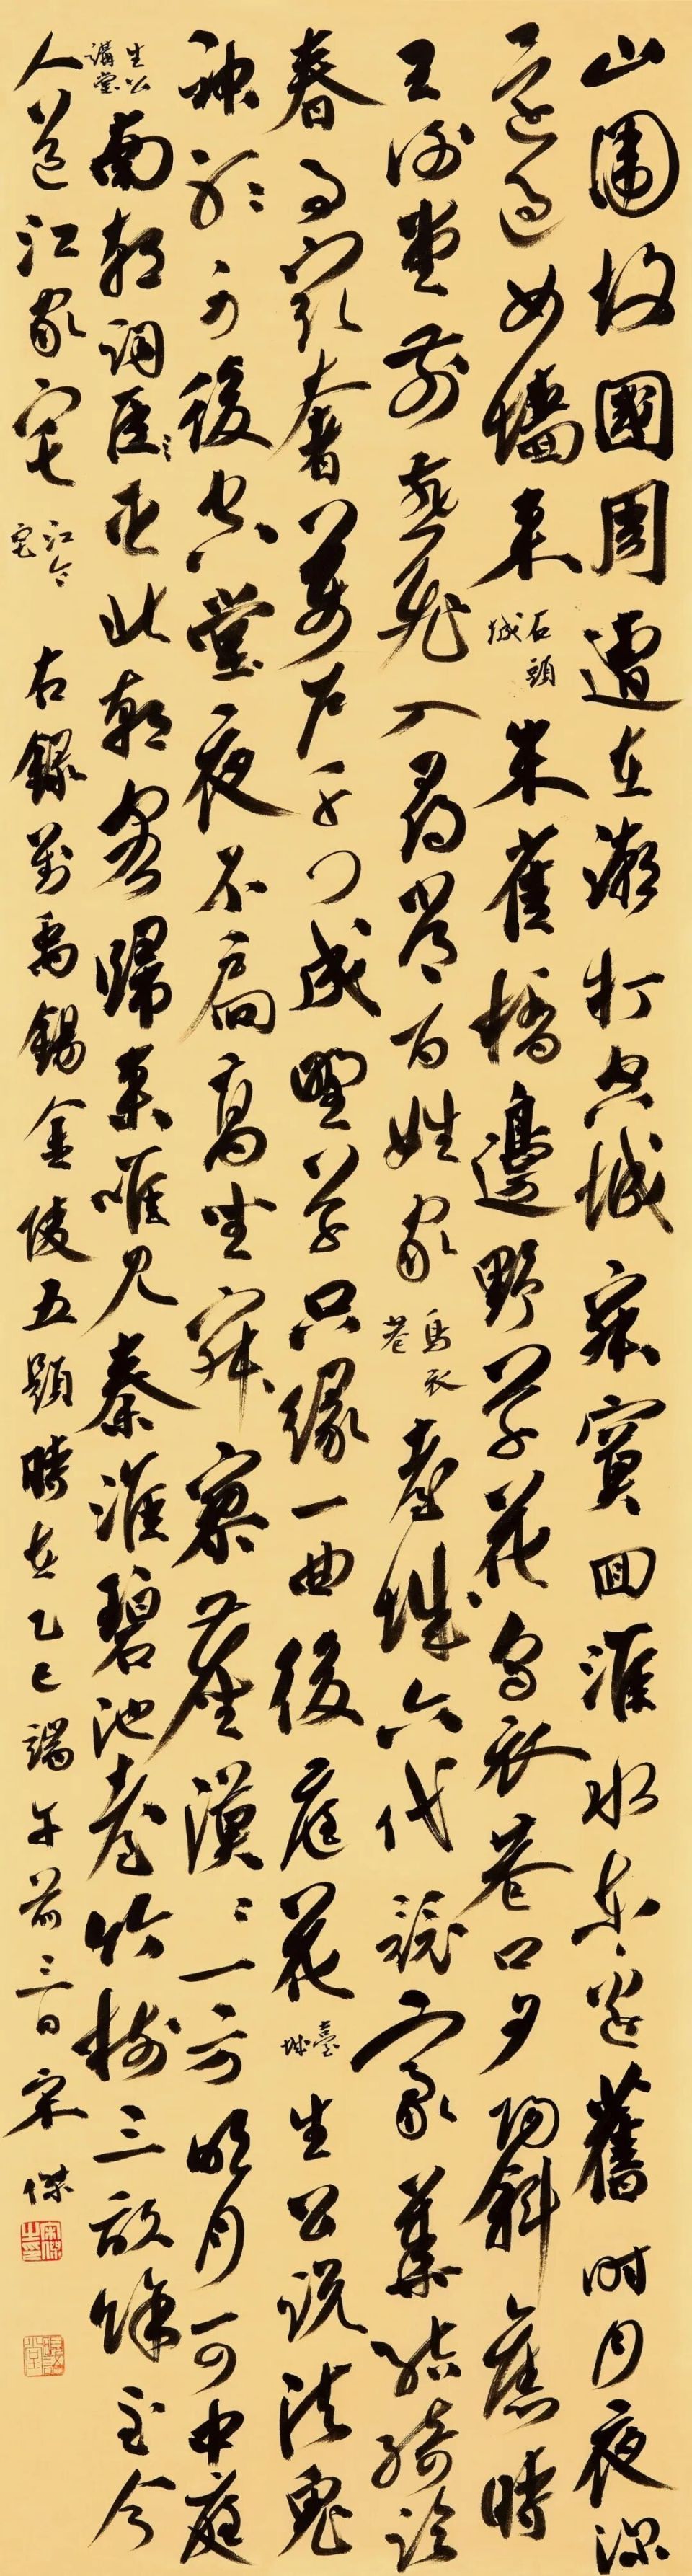 山圍故國周遭在潮打空城寂寞回淮水東邊舊時月夜深
還過女墻來石頭城朱雀橋邊野草花烏衣巷口夕陽斜舊時
王謝堂前燕飛入尋常百姓家烏衣巷臺城六代競豪華結綺臨
春事最奢萬戶千門成野草只緣一曲後庭花臺城生公說法鬼
神聽〻身後空堂夜不扃高坐寂寥塵漠〻一方明月可中庭
生公講堂南朝詞臣北朝客歸來唯見秦淮碧池臺竹樹三畝餘至今
人道江家宅江令宅右錄劉禹錫金陵五題時在乙巳端午前三日宋傑
宋傑之印